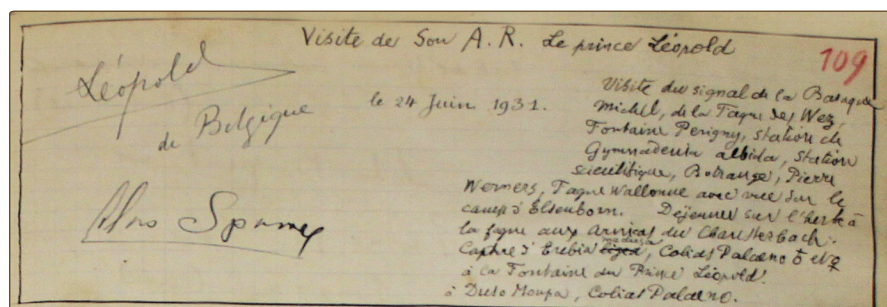 Visite de Son A. R. Le prince Léopold
109
Léopold
de Belgique
le 24 Juin 1931.
Visite du signal de la Baraque
Michel, de la Fagne des Wez,
Fontaine Perigny, station de
Gymnadenia albida, station
scientifique, Botrange, Pierre
Werners, Fagne Wallonne avec vue sur le
camp d'Elsenborn. Déjeuner sur l'herbe à
la fagne aux Arnicas du Charlsterbach.
Capture d'Erebia medusa, Colias Palaeno ♂ et ♀
à la Fontaine du Prince Léopold.
à Duso Moupa, Colias Palaeno.